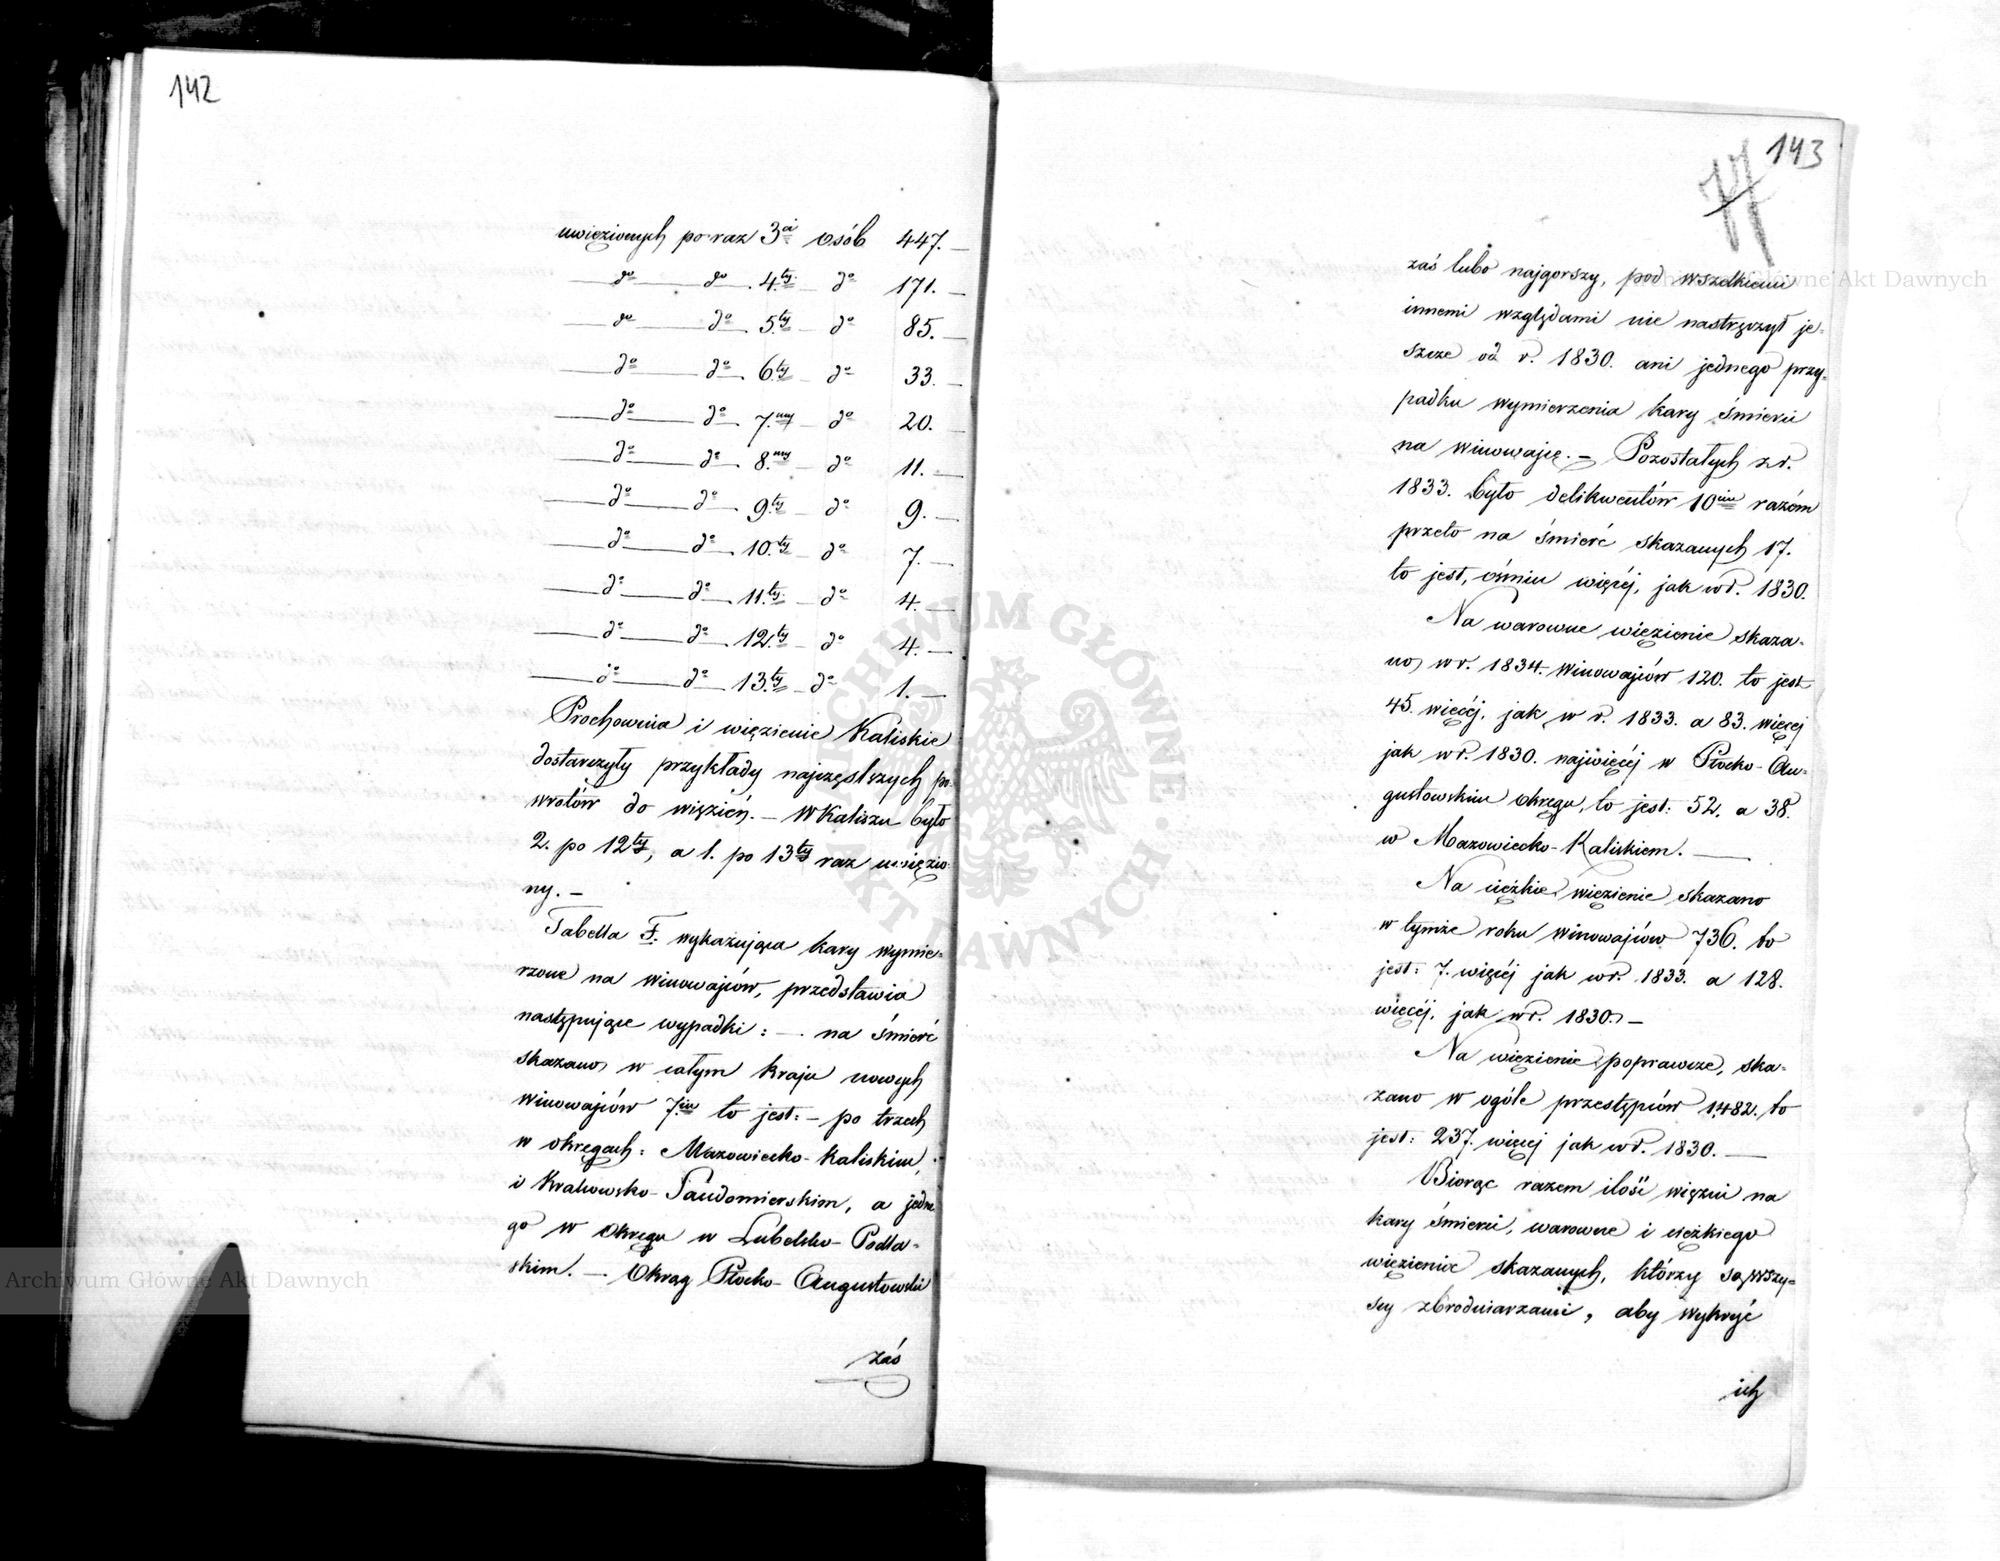 142
uwięzionych po raz 3ci osób 447. —
— do — do — 4.ty — do 171. —
— do — do — 5.ty — do 85. —
— do — do — 6.ty — do 33. —
— do — do — 7.my — do 20. —
— do — do — 8.my — do 11. —
— do — do — 9.ty — do 9. —
— do — do — 10.ty — do 7. —
— do — do — 11.ty — do 4. —
— do — do — 12.ty — do 4. —
— do — do — 13.ty — do 1. —
Prochownia i więzienie Kaliskie
dostarczyły przykłady najczęstszych po-
wrotów do więzień. — W Kaliszu było
2. po 12ty, a 1. po 13ty raz uwięzio-
ny. —
Tabella F. wykazująca kary wymie-
rzone na winowajców, przedstawia
następujące wypadki: — na śmierć
skazano w całym kraju nowych
winowajców 7.iu to jest: — po trzech
w okręgach: Mazowiecko-Kaliskim,
i Krakowsko-Sandomierskim, a jedne-
go w okręgu w Lubelsko-Podla-
skim. — Okrąg Płocko-Augustowski
zaś
143
77
zaś lubo najgorszy, pod wszelkiemi
innemi względami nie nastręczył je-
szcze od r. 1830. ani jednego przy-
padku wymierzenia kary śmierci
na winowajcę. — Pozostałych z r.
1833. było delikwentów 10ciu razém
przeto na śmierć skazanych 17.
to jest, ośmiu więcéj, jak w r. 1830.
Na warowne więzienie skaza-
no w r. 1834. winowajców 120. to jest
45. więcéj, jak w r. 1833. a 83. więcej
jak w r. 1830. najwięcéj w Płocko-Au-
gustowskim okręgu, to jest: 52. a 38.
w Mazowiecko-Kaliskiem. —
Na ciężkie więzienie skazano
w tymże roku winowajców 736. to
jest: 7. więcéj jak w r. 1833. a 128.
więcéj, jak w r. 1830. —
Na więzienie poprawcze, ska-
zano w ogóle przestępców 1,482. to
jest: 237. więcej jak w r. 1830. —
Biorąc razem ilość więźni na
kary śmierci, warowne i ciężkiego
więzienie skazanych, którzy są wszy-
scy zbrodniarzami, aby wykryć
ich
Archiwum Główne Akt Dawnych
Archiwum Główne Akt Dawnych
ARCHIWUM GŁÓWNE AKT DAWNYCH